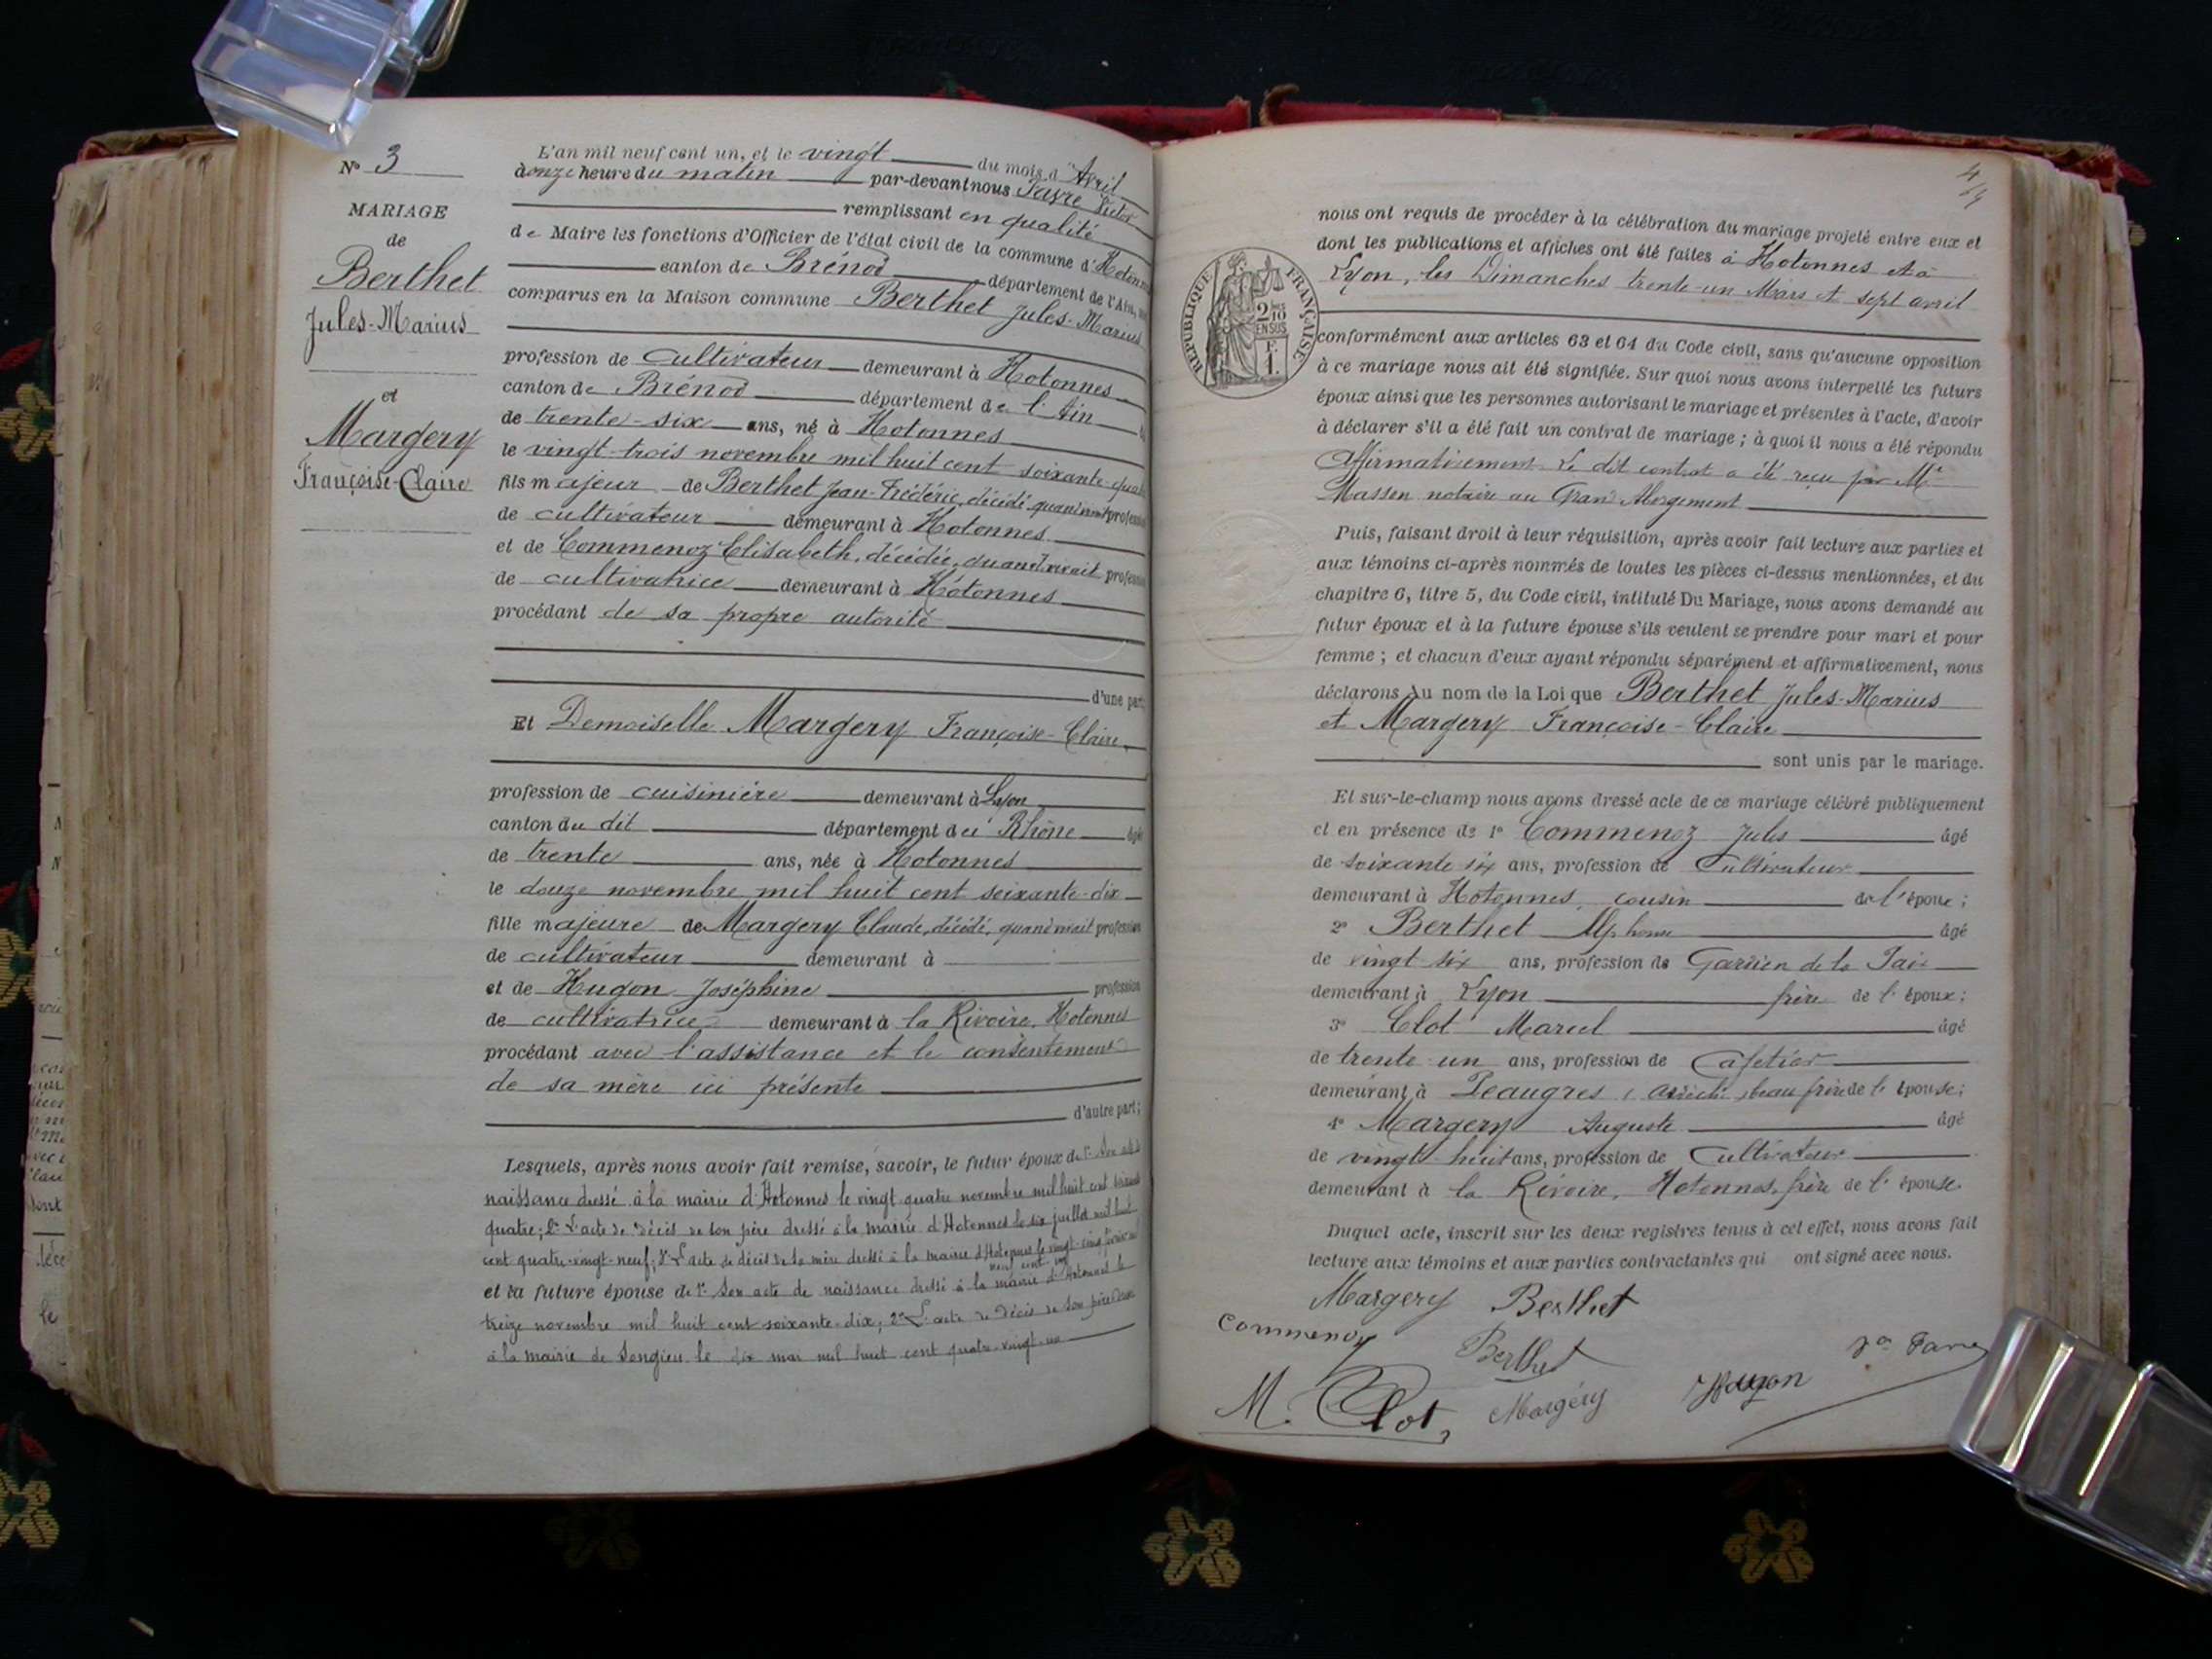 N° 3
MARIAGE
de
Berthet
Jules-Marius
et
Margery
Françoise-Claire
L'an mil neuf cent un, et le vingt du mois d'Avril
à onze heure du matin par-devant nous Favre Victor
remplissant en qualité
de Maire les fonctions d'Officier de l'état civil de la commune d'Hotonnes
canton de Brénod département de l'Ain, sont
comparus en la Maison commune Berthet Jules-Marius
profession de cultivateur demeurant à Hotonnes
canton de Brénod département de l'Ain
de trente-six ans, né à Hotonnes
le vingt-trois novembre mil huit cent soixante-quatre
fils majeur de Berthet Jean-Frédéric, décédé, quand vivait profession
de cultivateur demeurant à Hotonnes
et de Commenoz Elisabeth, décédée, quand vivait profession
de cultivatrice demeurant à Hotonnes
procédant de sa propre autorité
d'une part;
Et Demoiselle Margery Françoise-Claire,
profession de cuisinière demeurant à Lyon
canton du dit département du Rhône âgée
de trente ans, née à Hotonnes
le douze novembre mil huit cent soixante-dix
fille majeure de Margery Claude, décédé, quand vivait profession
de cultivateur demeurant à
et de Hugon Joséphine profession
de cultivatrice demeurant à la Rivoire, Hotonnes
procédant avec l'assistance et le consentement
de sa mère ici présente
d'autre part;
Lesquels, après nous avoir fait remise, savoir, le futur époux de 1° Son acte de
naissance dressé à la mairie d'Hotonnes le vingt quatre novembre mil huit cent soixante
quatre; 2° L'acte de décès de son père dressé à la mairie d'Hotonnes le six juillet mil huit
cent quatre-vingt-neuf; 3° L'acte de décès de sa mère dressé à la mairie d'Hotonnes le vingt-cinq février mil
neuf cent un
et la future épouse de 1° Son acte de naissance dressé à la mairie d'Hotonnes le
treize novembre mil huit cent soixante-dix; 2° L'acte de décès de son père dressé
à la mairie de Songieu le dix mai mil huit cent quatre-vingt-un
4
nous ont requis de procéder à la célébration du mariage projeté entre eux et
dont les publications et affiches ont été faites à Hotonnes et à
Lyon, les Dimanches trente-un Mars et sept avril
RÉPUBLIQUE FRANÇAISE
2/10 EN SUS
F. 1.
conformément aux articles 63 et 64 du Code civil, sans qu'aucune opposition
à ce mariage nous ait été signifiée. Sur quoi nous avons interpellé les futurs
époux ainsi que les personnes autorisant le mariage et présentes à l'acte, d'avoir
à déclarer s'il a été fait un contrat de mariage; à quoi il nous a été répondu
Affirmativement. Le dit contrat a été reçu par Me
Masson notaire au Grand Abergement
Puis, faisant droit à leur réquisition, après avoir fait lecture aux parties et
aux témoins ci-après nommés de toutes les pièces ci-dessus mentionnées, et du
chapitre 6, titre 5, du Code civil, intitulé Du Mariage, nous avons demandé au
futur époux et à la future épouse s'ils veulent se prendre pour mari et pour
femme; et chacun d'eux ayant répondu séparément et affirmativement, nous
déclarons Au nom de la Loi que Berthet Jules-Marius
et Margery Françoise-Claire
sont unis par le mariage.
Et sur-le-champ nous avons dressé acte de ce mariage célébré publiquement
et en présence de 1° Commenoz Jules âgé
de soixante six ans, profession de Cultivateur
demeurant à Hotonnes, cousin de l'époux;
2° Berthet Alphonse âgé
de vingt six ans, profession de Gardien de la Paix
demeurant à Lyon frère de l'époux;
3° Clot Marcel âgé
de trente-un ans, profession de Cafetier
demeurant à Peaugres, Ardèche, beau frère de l'épouse;
4° Margery Auguste âgé
de vingt-huit ans, profession de Cultivateur
demeurant à la Rivoire, Hotonnes, frère de l'épouse.
Duquel acte, inscrit sur les deux registres tenus à cet effet, nous avons fait
lecture aux témoins et aux parties contractantes qui ont signé avec nous.
Margery Berthet
Commenoz
Berthet
Vor Favre
M. Clot
Margéry
Hugon